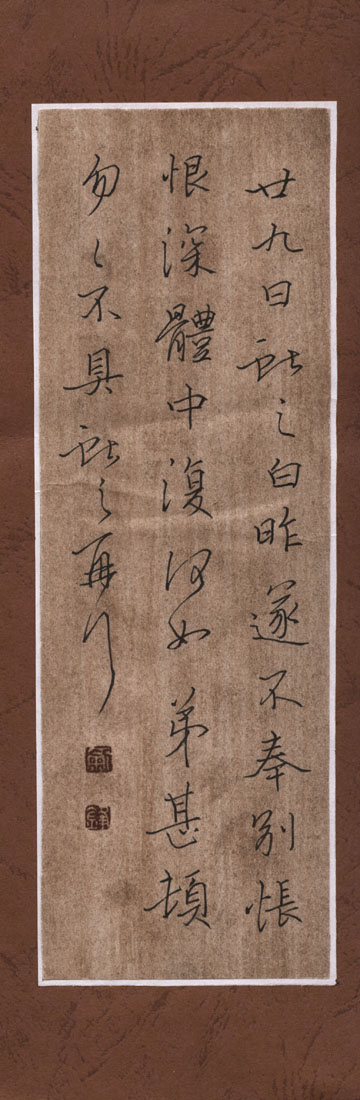 廿九日獻之白昨遂不奉別悵
恨深體中復何如弟甚頓
勿〻不具獻之再行